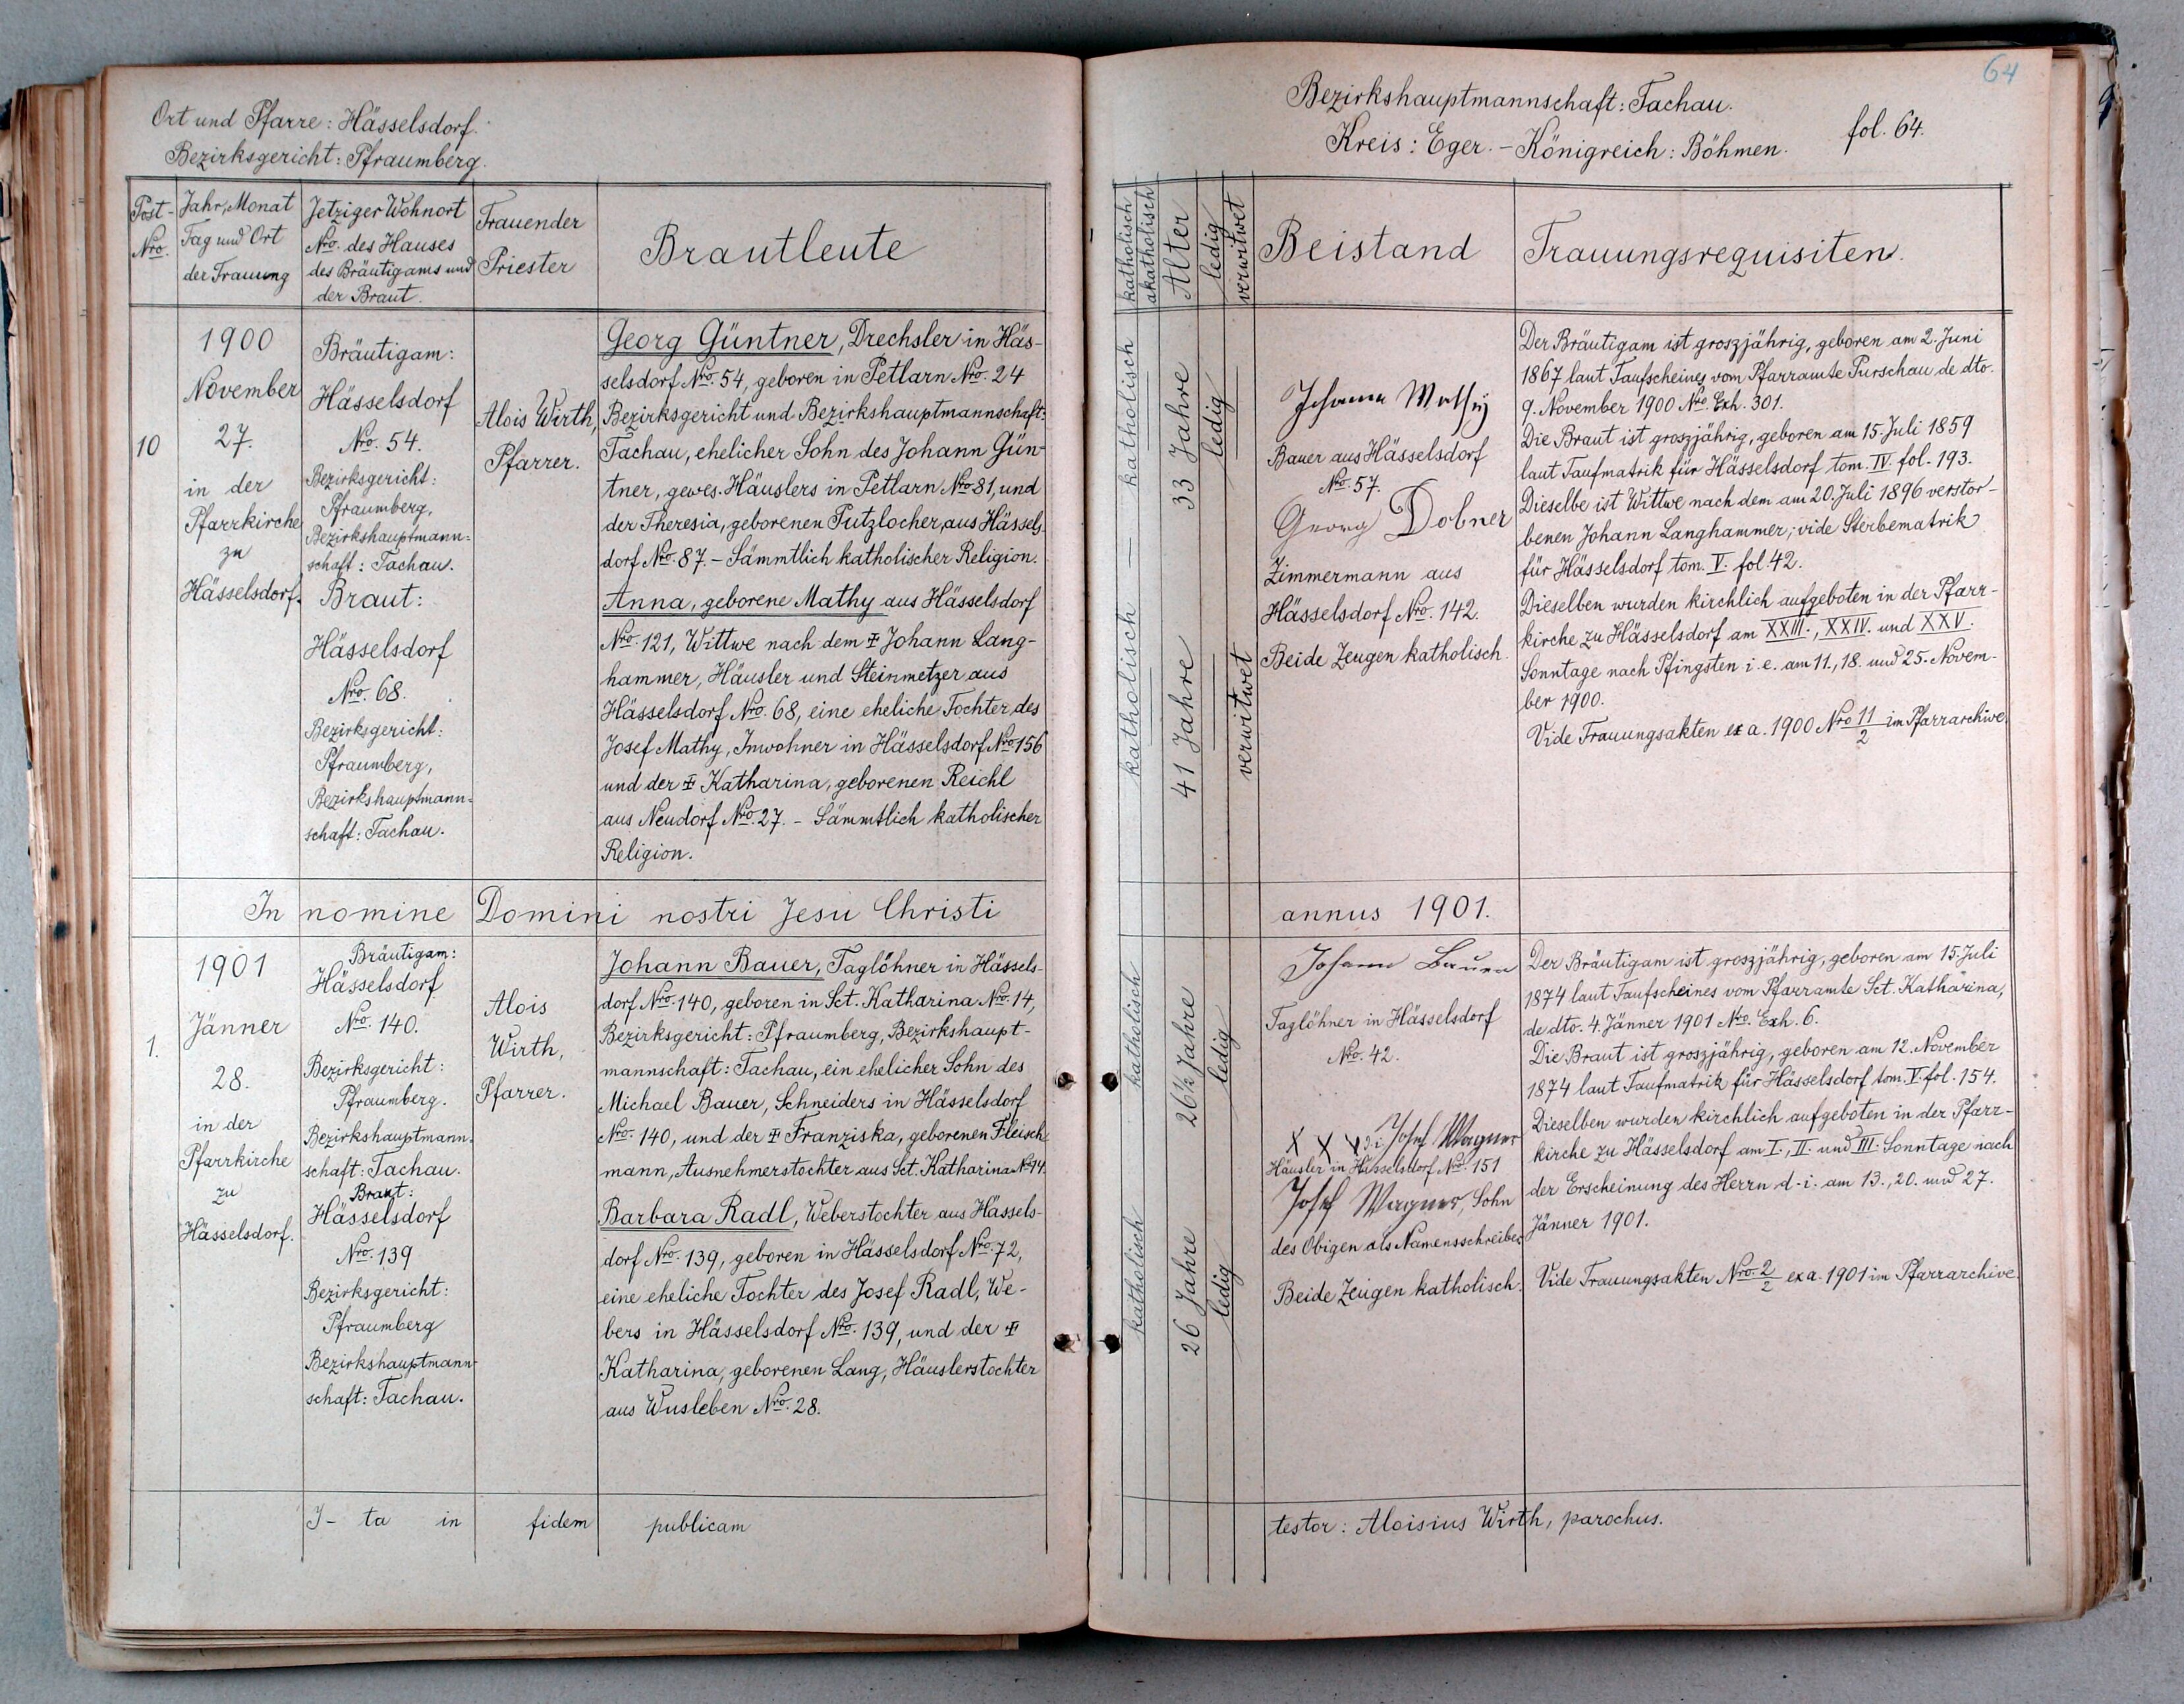 Ort und Pfarre: Hässelsdorf.
Bezirksgericht: Pfraumberg.
Post-
Nro.
Jahr, Monat
Tag und Ort
der Trauung
Jetziger Wohnort
Nro. des Hauses
des Bräutigams und
der Braut.
Trauender
Priester
Brautleute
10
1900
November
27.
in der
Pfarrkirche
zu
Hässelsdorf.
Bräutigam:
Hässelsdorf
Nro. 54.
Bezirksgericht:
Pfraumberg,
Bezirkshauptmann=
schaft: Tachau.
Braut:
Hässelsdorf
Nro. 68.
Bezirksgericht:
Pfraumberg,
Bezirkshauptmann=
schaft: Tachau.
Alois Wirth,
Pfarrer.
Georg Güntner, Drechsler in Häs-
selsdorf Nro. 54, geboren in Petlarn Nro. 24
Bezirksgericht und Bezirkshauptmannschaft:
Tachau, ehelicher Sohn des Johann Gün-
tner, gewes. Häuslers in Petlarn Nro 81, und
der Theresia, geborenen Putzlocher, aus Hässels-
dorf Nro. 87. – Sämmtlich katholischer Religion.
Anna, geborene Mathy aus Hässelsdorf
Nro. 121, Wittwe nach dem ‡ Johann Lang-
hammer, Häusler und Steinmetzer aus
Hässelsdorf Nro. 68, eine eheliche Tochter des
Josef Mathy, Inwohner in Hässelsdorf Nro 156
und der ‡ Katharina, geborenen Reichl
aus Neudorf Nro. 27. – Sämmtlich katholischer
Religion.
In nomine Domini nostri Jesu Christi
1.
1901
Jänner
28.
in der
Pfarrkirche
zu
Hässelsdorf.
Bräutigam:
Hässelsdorf
Nro. 140.
Bezirksgericht:
Pfraumberg.
Bezirkshauptmann-
schaft: Tachau.
Braut:
Hässelsdorf
Nro. 139
Bezirksgericht:
Pfraumberg
Bezirkshauptmann-
schaft: Tachau.
Alois
Wirth,
Pfarrer.
Johann Bauer, Taglöhner in Hässels-
dorf Nro. 140, geboren in Sct. Katharina Nro. 14,
Bezirksgericht: Pfraumberg, Bezirkshaupt-
mannschaft: Tachau, ein ehelicher Sohn des
Michael Bauer, Schneiders in Hässelsdorf
Nro. 140, und der ‡ Franziska, geborenen Fleisch
mann, Ausnehmerstochter aus Sct. Katharina
Barbara Radl, Weberstochter aus Hässels-
dorf Nro. 139, geboren in Hässelsdorf Nro. 72,
eine eheliche Tochter des Josef Radl, We-
bers in Hässelsdorf Nro. 139, und der ‡
Katharina, geborenen Lang, Häuslerstochter
aus Wusleben Nro. 28.
I- ta in fidem publicam
64
Bezirkshauptmannschaft: Tachau.
Kreis: Eger. – Königreich: Böhmen.
fol. 64.
katholisch
akatholisch
Alter
ledig
verwitwet
Beistand
Trauungsrequisiten.
katholisch — katholisch
33 Jahre
41 Jahre
ledig
verwitwet
Johann Mathy
Bauer aus Hässelsdorf
Nro. 57.
Georg Dobner
Zimmermann aus
Hässelsdorf Nro. 142.
Beide Zeugen katholisch.
Der Bräutigam ist groszjährig, geboren am 2. Juni
1867 laut Taufscheines vom Pfarramte Purschau de dto.
9. November 1900 Nro. Exh. 301.
Die Braut ist groszjährig, geboren am 15. Juli 1859
laut Taufmatrik für Hässelsdorf tom. IV. fol. 193.
Dieselbe ist Wittwe nach dem am 20. Juli 1896 verstor-
benen Johann Langhammer; vide Sterbematrik
für Hässelsdorf tom. V. fol. 42.
Dieselben wurden kirchlich aufgeboten in der Pfarr-
kirche zu Hässelsdorf am XXIII., XXIV. und XXV.
Sonntage nach Pfingsten i. e. am 11., 18. und 25. Novem-
ber 1900.
Vide Trauungsakten ex a. 1900 Nro 11/2 im Pfarrarchive.
annus 1901.
katholisch
katholisch
26½ Jahre
26 Jahre
ledig
ledig
Johann Bauer
Taglöhner in Hässelsdorf
Nro. 42.
X X X d. i. Josef Wagner
Häusler in Hässelsdorf Nro. 151
Josef Wagner, Sohn
des Obigen als Namensschreiber
Beide Zeugen katholisch.
Der Bräutigam ist groszjährig, geboren am 15. Juli
1874 laut Taufscheines vom Pfarramte Sct. Katharina,
de dto. 4. Jänner 1901 Nro. Exh. 6.
Die Braut ist groszjährig, geboren am 12. November
1874 laut Taufmatrik für Hässelsdorf tom. V. fol. 154.
Dieselben wurden kirchlich aufgeboten in der Pfarr-
kirche zu Hässelsdorf am I., II. und III. Sonntage nach
der Erscheinung des Herrn d. i. am 13., 20. und 27.
Jänner 1901.
Vide Trauungsakten Nro. 2/2 ex a. 1901 im Pfarrarchive.
testor: Aloisius Wirth, parochus.